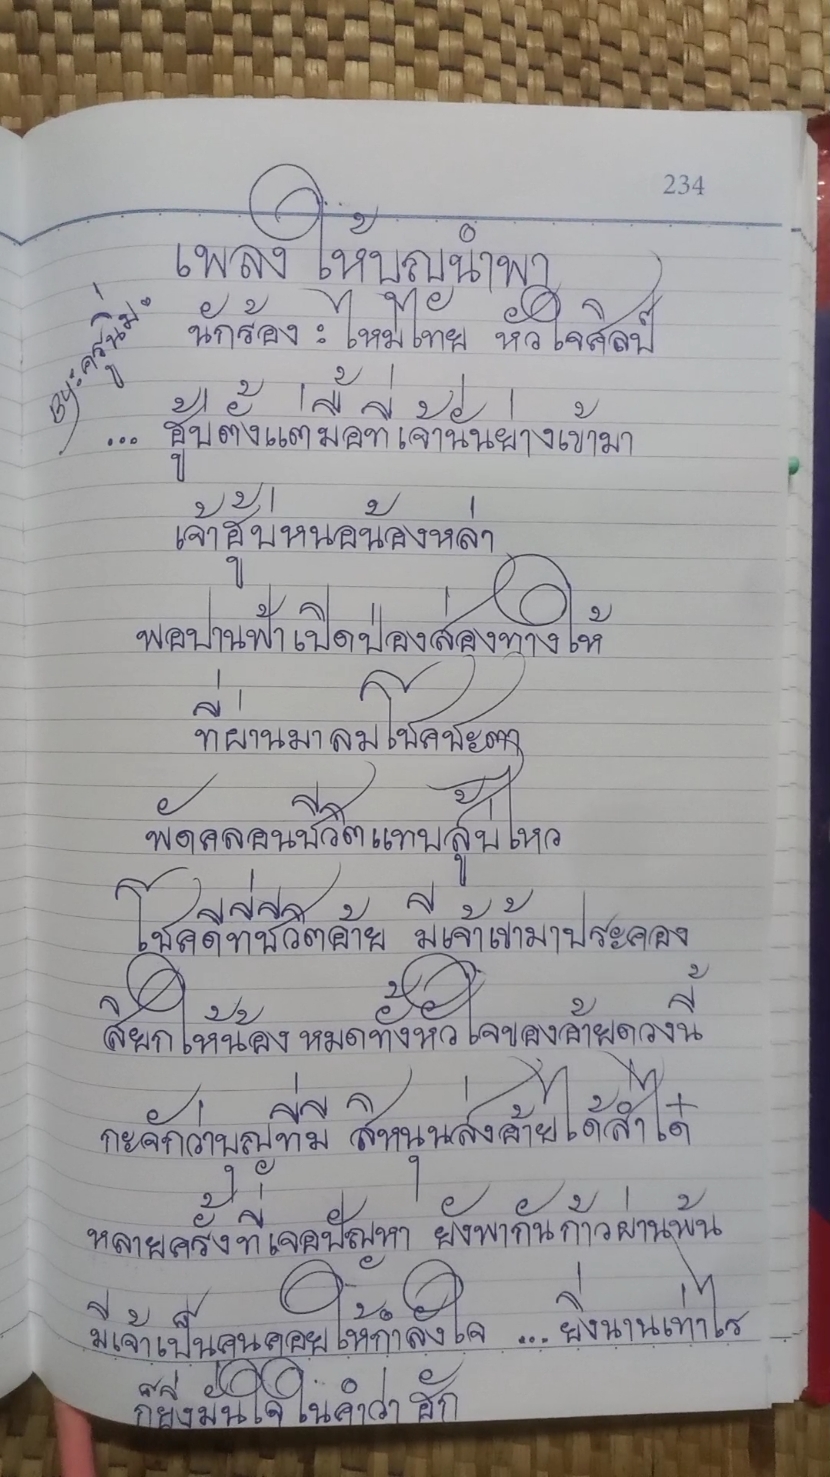 234
เพลง ให้บุญนำพา
นักร้อง : ไหมไทย หัวใจศิลป์
By: ครูนิ่ม
... ฮู้บ่ตั้งแต่มื้อที่เจ้านั่นย่างเข้ามา
เจ้าฮู้บ่หนอน้องหล่า
พอปานฟ้าเปิดป่องส่องทางให้
ที่ผ่านมาลมโชคชะตา
พัดคลอนชีวิตแทบสู้บ่ไหว
โชคดีที่ชีวิตอ้าย มีเจ้าเข้ามาประคอง
สิยกให้น้อง หมดทั้งหัวใจของอ้ายดวงนี้
กะจักว่าบุญที่มี สิหนุนส่งอ้ายได้ส่ำใด๋
หลายครั้งที่เจอปัญหา ยังพากันก้าวผ่านพ้น
มีเจ้าเป็นคนคอยให้กำลังใจ ... ยิ่งนานเท่าไร
ก็ยิ่งมั่นใจในคำว่า ฮัก